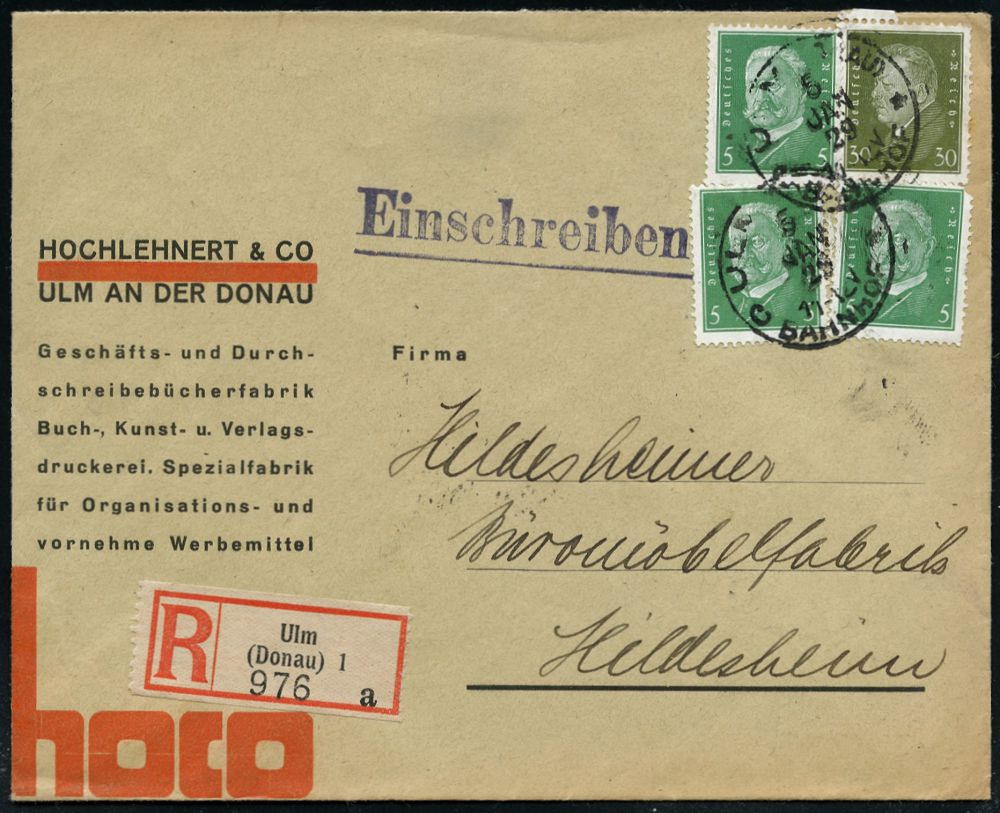 HOCHLEHNERT & CO
ULM AN DER DONAU
Geschäfts- und Durch-
schreibebücherfabrik
Buch-, Kunst- u. Verlags-
druckerei. Spezialfabrik
für Organisations- und
vornehme Werbemittel
hoco
R
Ulm
(Donau) 1
976 a
Einschreiben
Deutsches Reich
5 5
Deutsches Reich
30 30
Deutsches Reich
5
Deutsches Reich
5
5 JAN 29
BAHNHOF
ULM
5 JAN 29
11-12 V
BAHNHOF
Firma
Hildesheimer
Büromöbelfabrik
Hildesheim